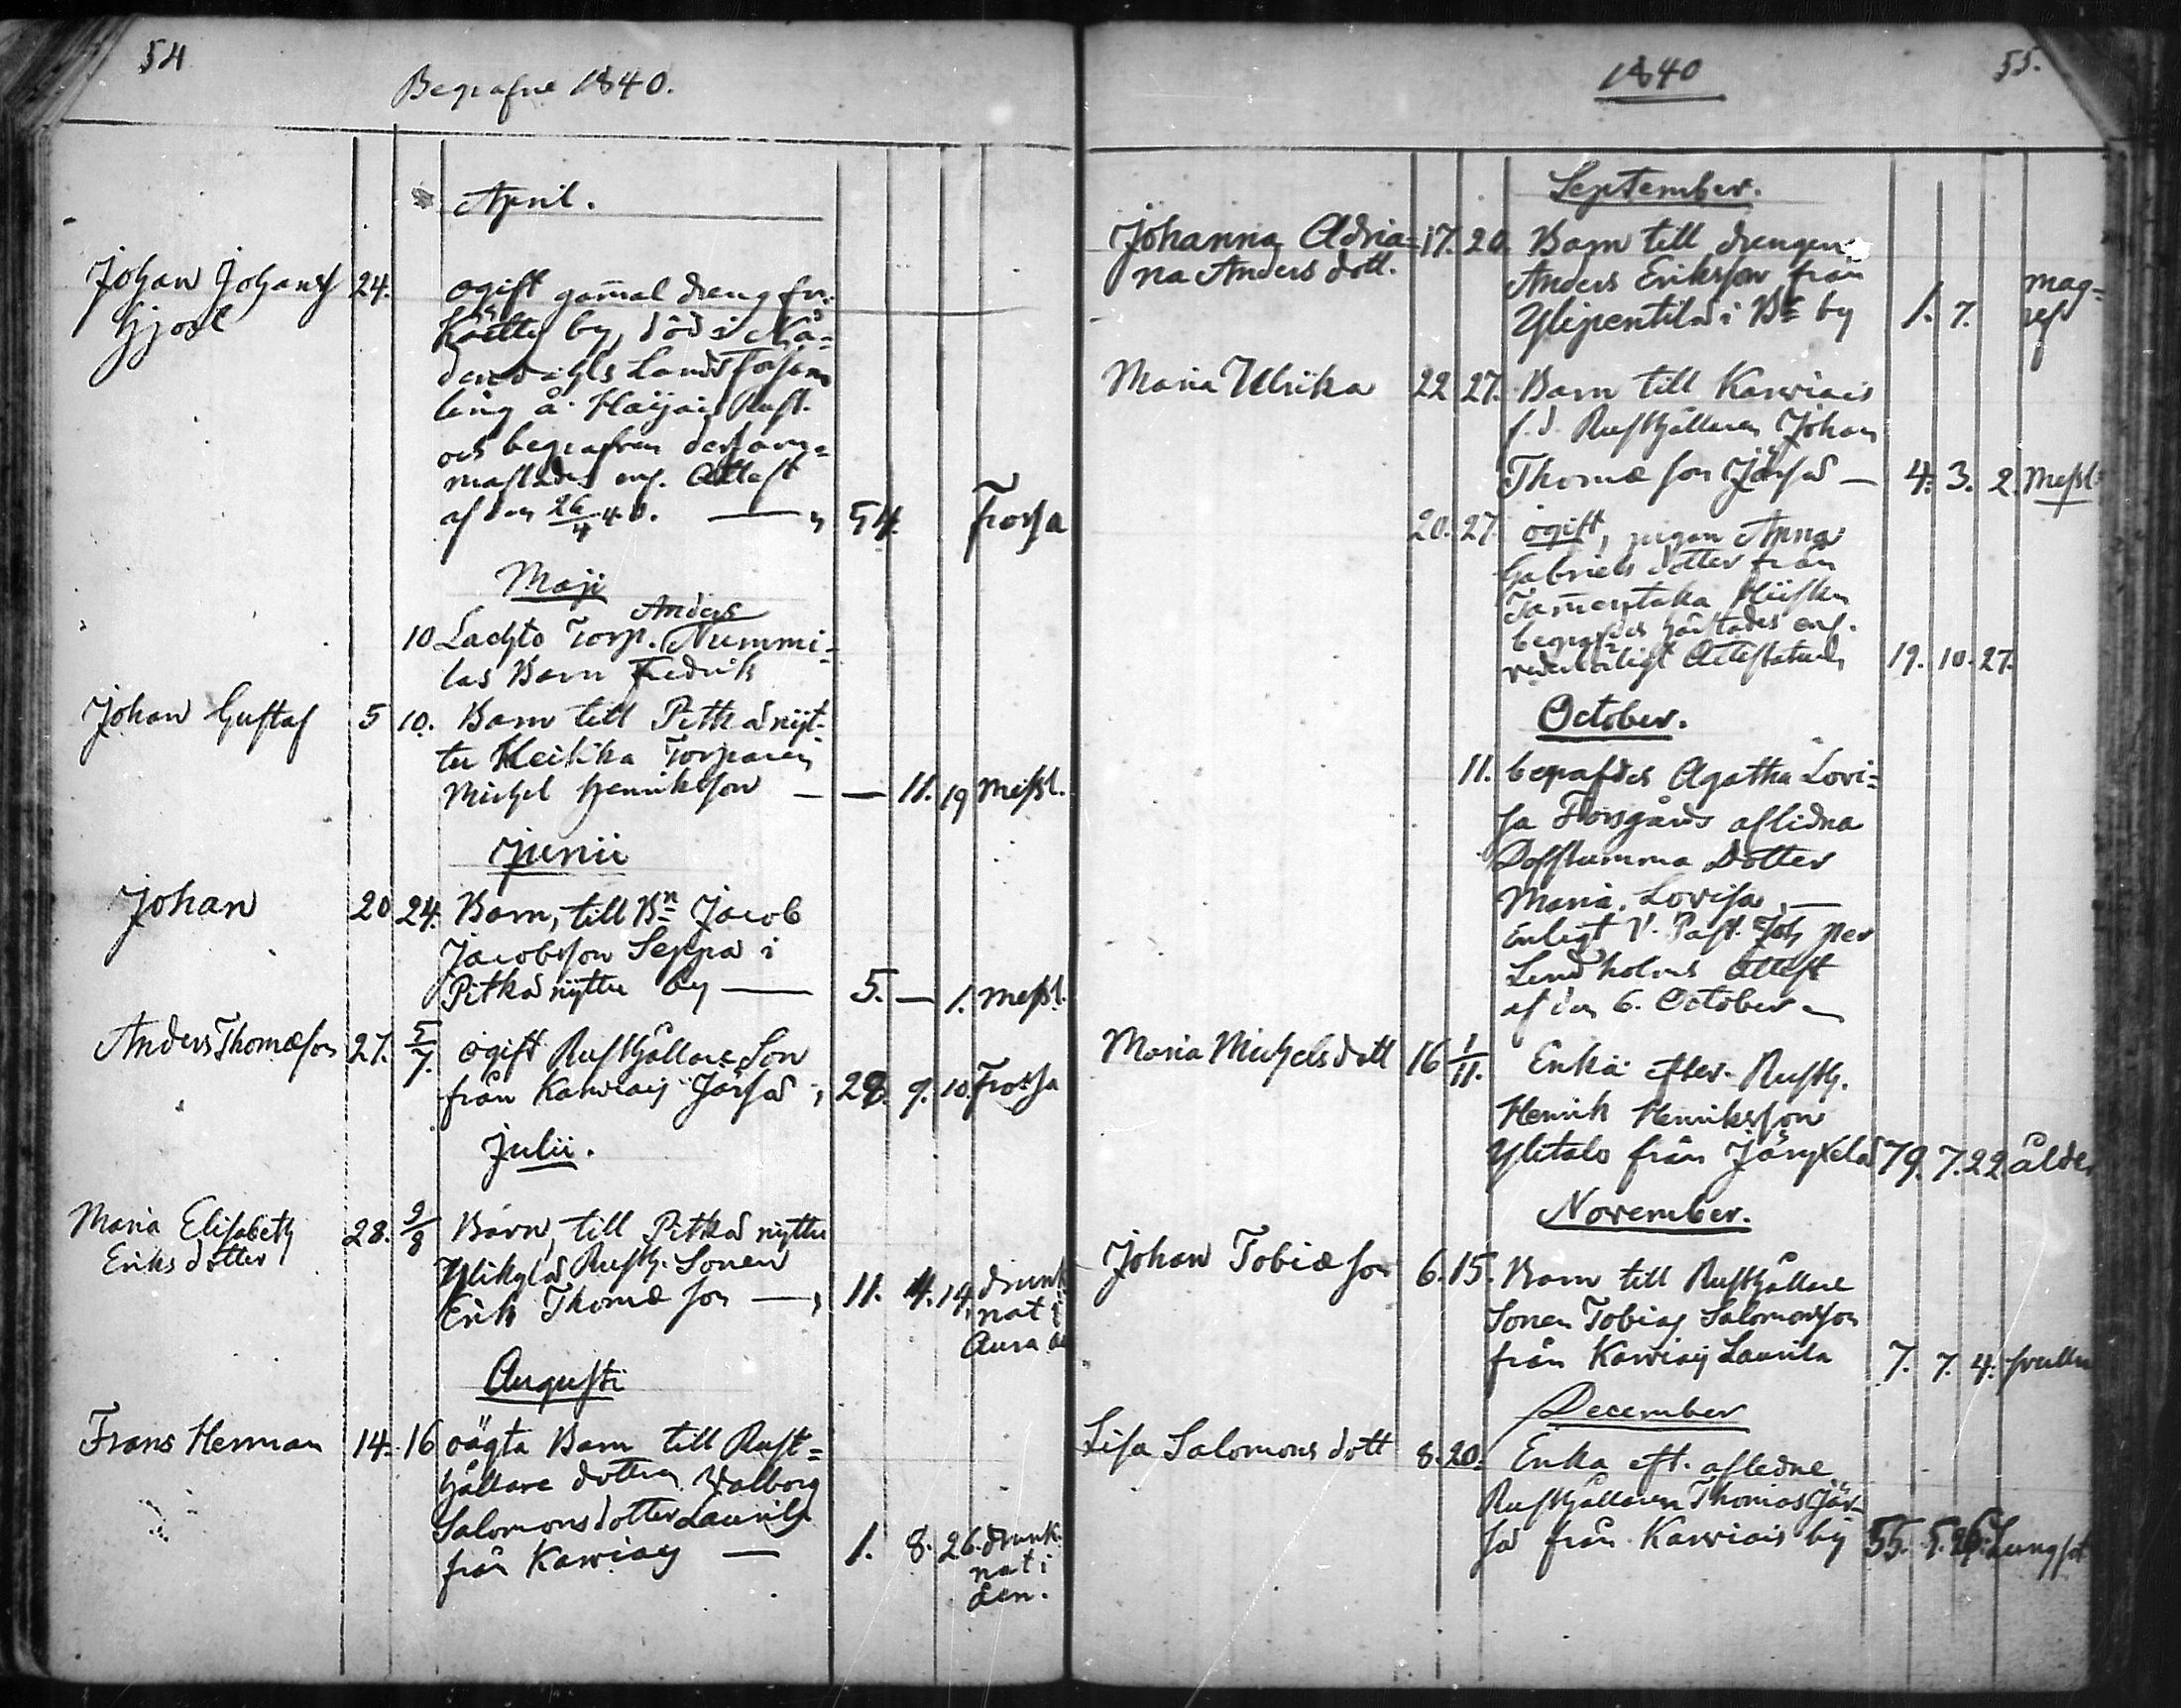 54
Begrafne 1840.
April.
Johan Johanss 24. ogift gam̄al dreng fr.
Hjort
by, död i Nå-
dendahls Landsförsam
ling å Rust.
och begrafven dersam-
mastädes enl. Attest
af den 26/4 40. — 54. Frossa
Maji
Anders
10 Lachto Torp. Nummi-
las Barn Fredrik
Johan Gustaf 5 10. Barn till Pitkäniyt-
tu Heikka Torparen
Michel Henriksson — — 11. 19 Messl.
Junii
Johan 20 24. Barn, till Bn Jacob
Jacobsson Seppä i
Pitkäniyttu by — 5. — 1. messl.
Anders Thomæson 27. 5/7. ogift Rusthållare Son
från Karviais Järsä, 29. 9. 10. Frossa
Julii.
Maria Elisabeth 28. 2/8 Barn, till Pitkäniyttu
Eriks dotter
Ylikylä Rusth. Sonen
Erik Thomæ son —, 11. 4. 14. drunk
nat i
Aura å
Augusti
Frans Herman 14. 16 oägta Barn till Rust-
hållare dottren Walborg
Salomonsdotter Laurila
från Karviais — 1. 8. 26. drunk-
nat i
åen.
1840
55.
September.
Johanna Adria- 17. 20. Barn till drengen
na Anders dott.
Anders Eriksson från
Ylipentilä i Bte by 1. 7. mag-
ref
Maria Ulrika 22 27. Barn till Karviais
f.d. Rusthållaren Johan
Thomæ son Järsä — 4. 3. 2. Messl.
20. 27. ogift, pigan Anna
Gabriels dotter från
Tam̄erytaka
begrofs härstädes enl.
vederbörligt Attestatum 19. 10. 27.
October.
11. begrafdes Agatha Lovi-
sa Forsgårds aflidna
Dofstumma Dotter
Maria Lovisa, —
Enligt V. Past. Joh per
Lindholms Attest
af den 6. October
Maria Michelsdott 16 1/11. Enka efter Rusth.
Henrik Henriksson
Ylitalo från Järykelä 79. 7. 22 ålder
November.
Johan Tobiæ son 6. 15. Barn till Rusthållare
Sonen Tobias Salomonsson
från Karviais Laurila 7. 7. 4. svulln
December
Lisa Salomons dott 8. 20. Enka eft. afledne
Rusthållaren Thomas Jär-
sä från Karviais by 55. 5. 26. Lungsot